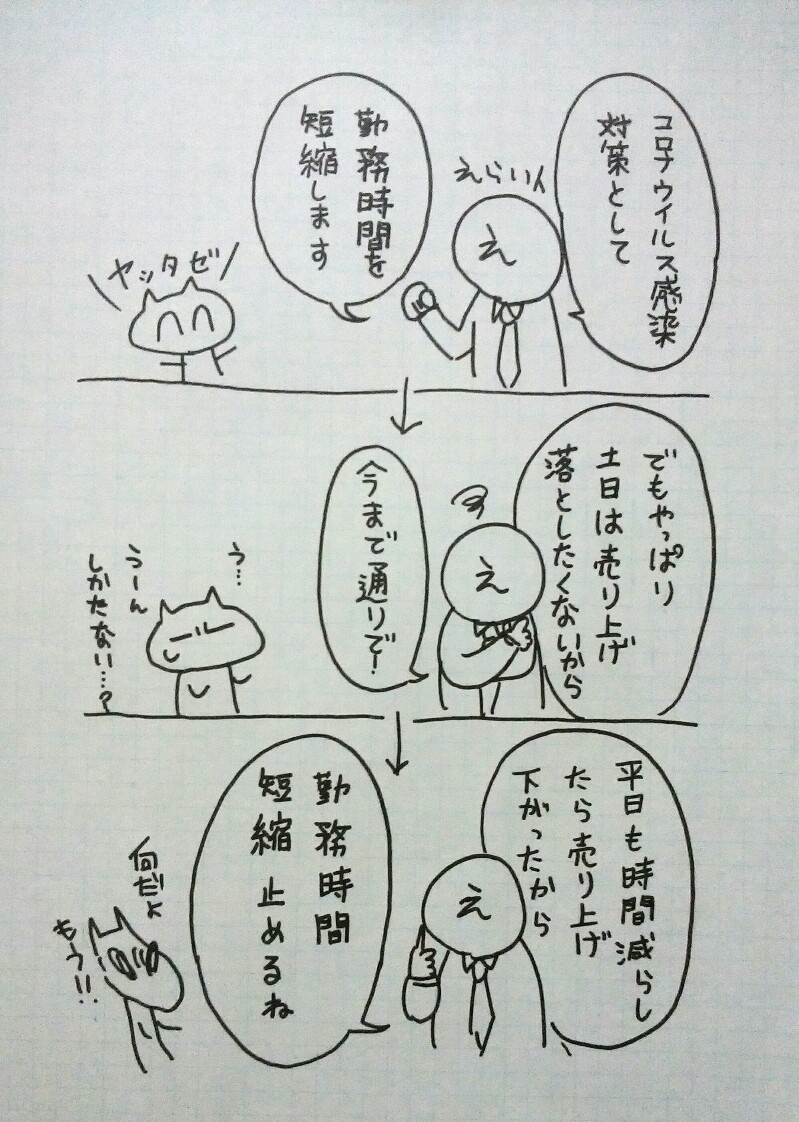 コロナウイルス感染
対策として
えらい人
え
勤務時間を
短縮します
ヤッタゼ
でもやっぱり
土日は売り上げ
落としたくないから
え
今まで通りで!
う…
うーん
しかたない…?
平日も時間減らし
たら売り上げ
下がったから
え
勤務時間
短縮 止めるね
何だよ
もう!!